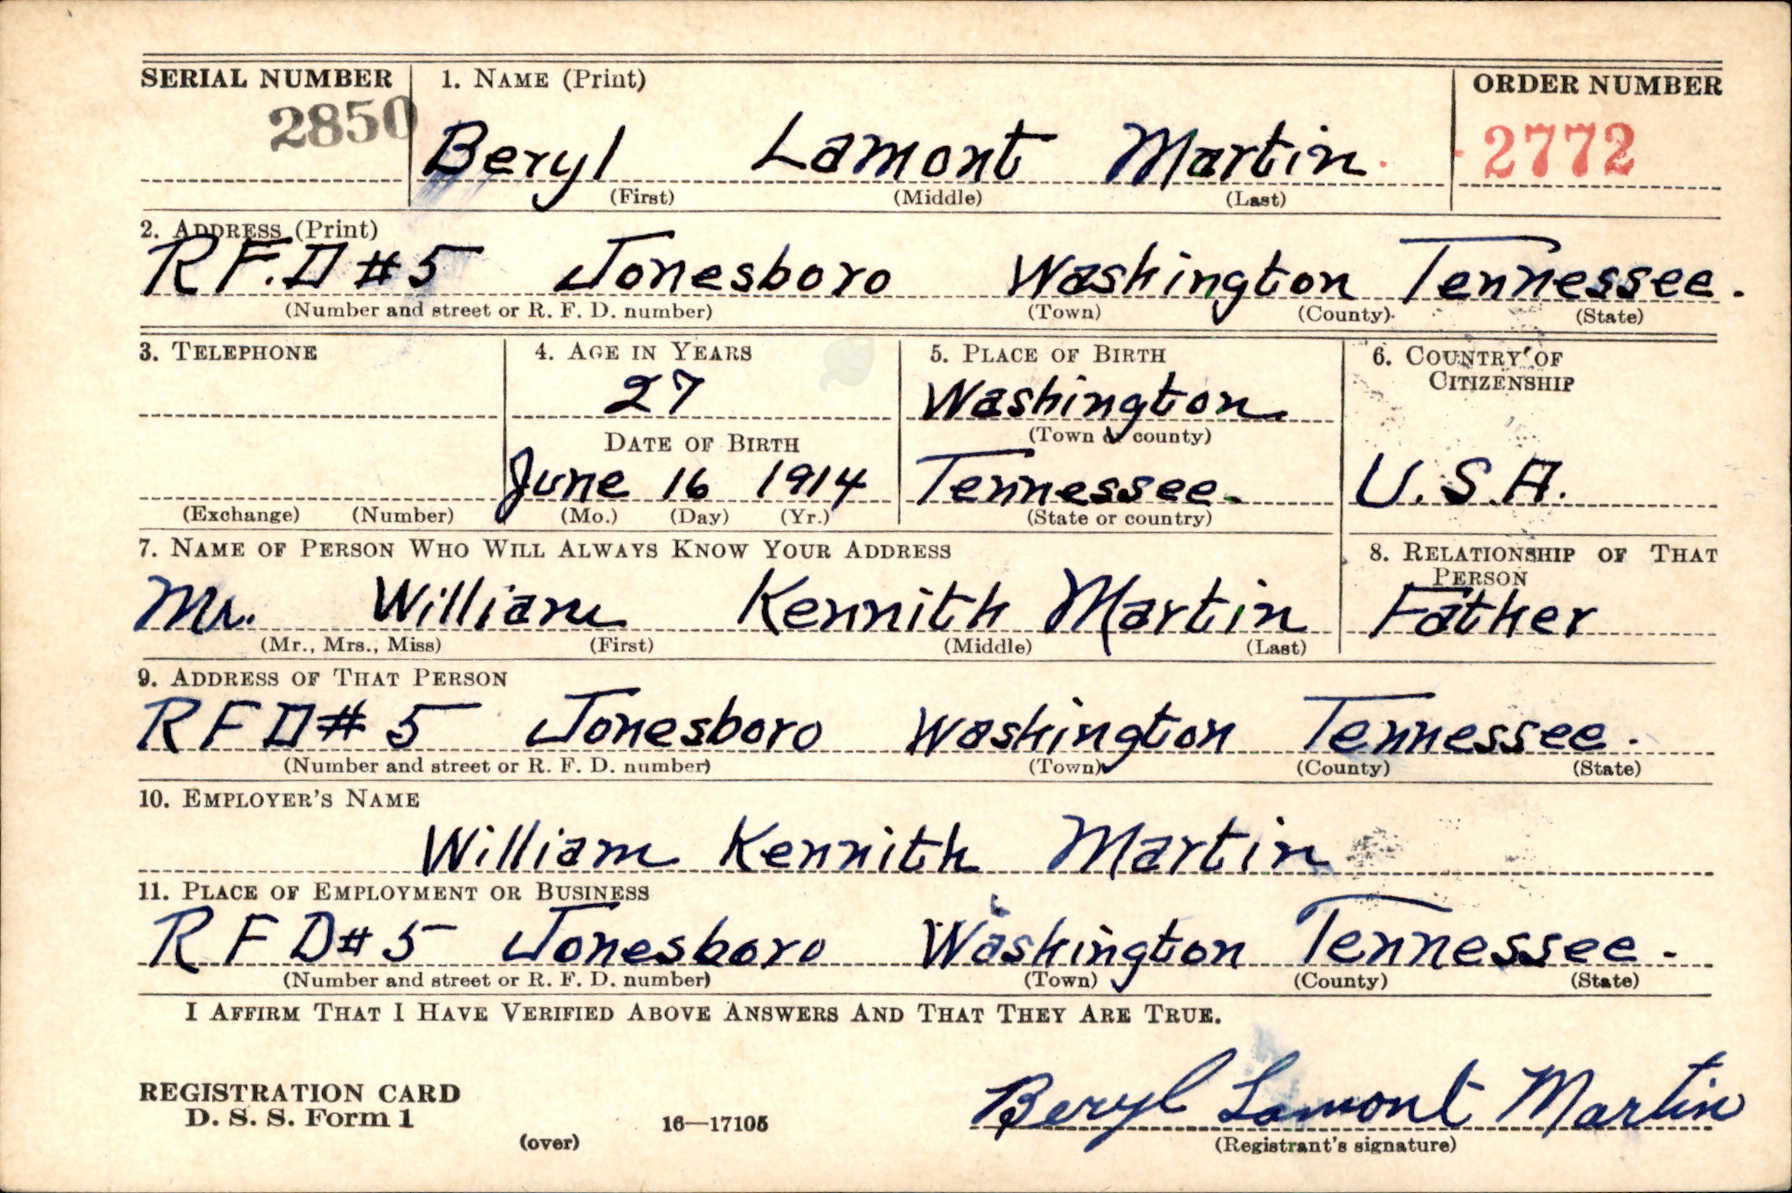 SERIAL NUMBER 1. NAME (Print) ORDER NUMBER
2850 Beryl Lamont Martin 2772
(First) (Middle) (Last)
2. ADDRESS (Print)
R F.D #5 Jonesboro Washington Tennessee.
(Number and street or R. F. D. number) (Town) (County) (State)
3. TELEPHONE 4. AGE IN YEARS 5. PLACE OF BIRTH 6. COUNTRY OF
CITIZENSHIP
27 Washington
DATE OF BIRTH (Town or county)
June 16 1914 Tennessee. U.S.A.
(Exchange) (Number) (Mo.) (Day) (Yr.) (State or country)
7. NAME OF PERSON WHO WILL ALWAYS KNOW YOUR ADDRESS 8. RELATIONSHIP OF THAT
PERSON
Mr. William Kennith Martin Father
(Mr., Mrs., Miss) (First) (Middle) (Last)
9. ADDRESS OF THAT PERSON
R F D # 5 Jonesboro Washington Tennessee.
(Number and street or R. F. D. number) (Town) (County) (State)
10. EMPLOYER'S NAME
William Kennith Martin
11. PLACE OF EMPLOYMENT OR BUSINESS
R F D # 5 Jonesboro Washington Tennessee.
(Number and street or R. F. D. number) (Town) (County) (State)
I AFFIRM THAT I HAVE VERIFIED ABOVE ANSWERS AND THAT THEY ARE TRUE.
REGISTRATION CARD
D. S. S. Form 1 16—17105 Beryl Lamont Martin
(over) (Registrant's signature)